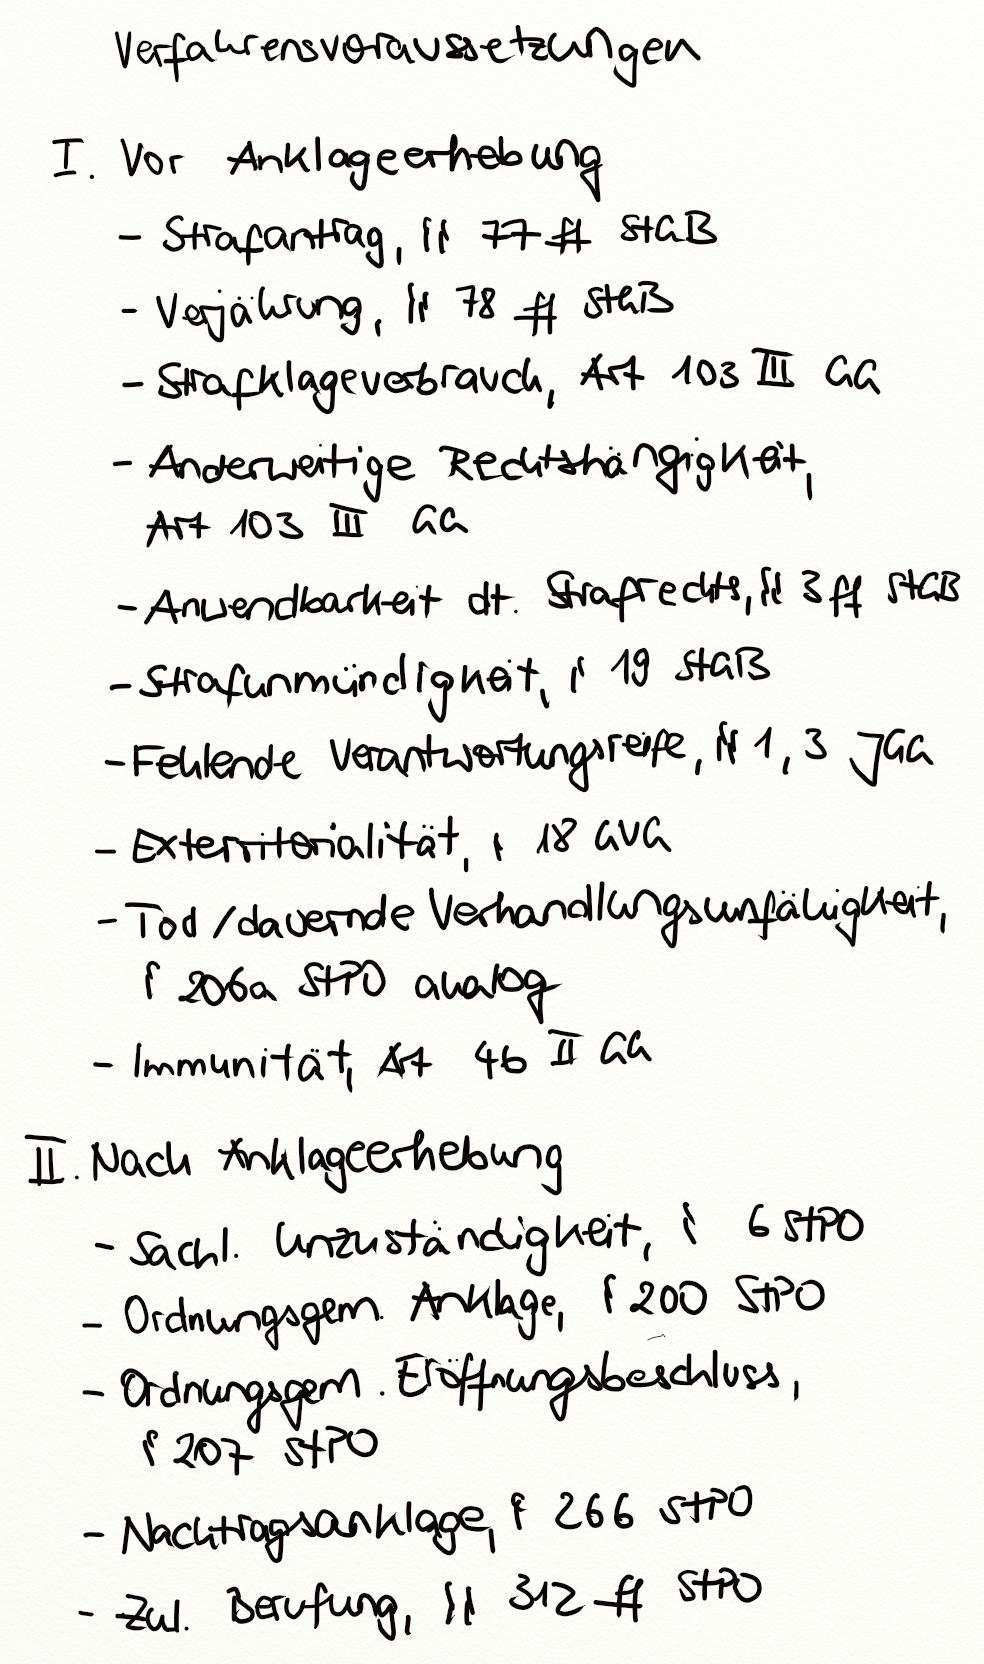 Verfahrensvoraussetzungen
I. Vor Anklageerhebung
- Strafantrag, §§ 77 ff StGB
- Verjährung, §§ 78 ff StGB
- Strafklageverbrauch, Art 103 III GG
- Anderweitige Rechtshängigkeit,
Art 103 III GG
- Anwendbarkeit dt. Strafrechts, §§ 3 ff StGB
- Strafunmündigkeit, § 19 StGB
- Fehlende Verantwortungsreife, §§ 1, 3 JGG
- Exterritorialität, § 18 GVG
- Tod / dauernde Verhandlungsunfähigkeit,
§ 206a StPO analog
- Immunität, Art 46 II GG
II. Nach Anklageerhebung
- Sachl. Unzuständigkeit, § 6 StPO
- Ordnungsgem. Anklage, § 200 StPO
- Ordnungsgem. Eröffnungsbeschluss,
§ 207 StPO
- Nachtragsanklage, § 266 StPO
- Zul. Berufung, §§ 312 ff StPO